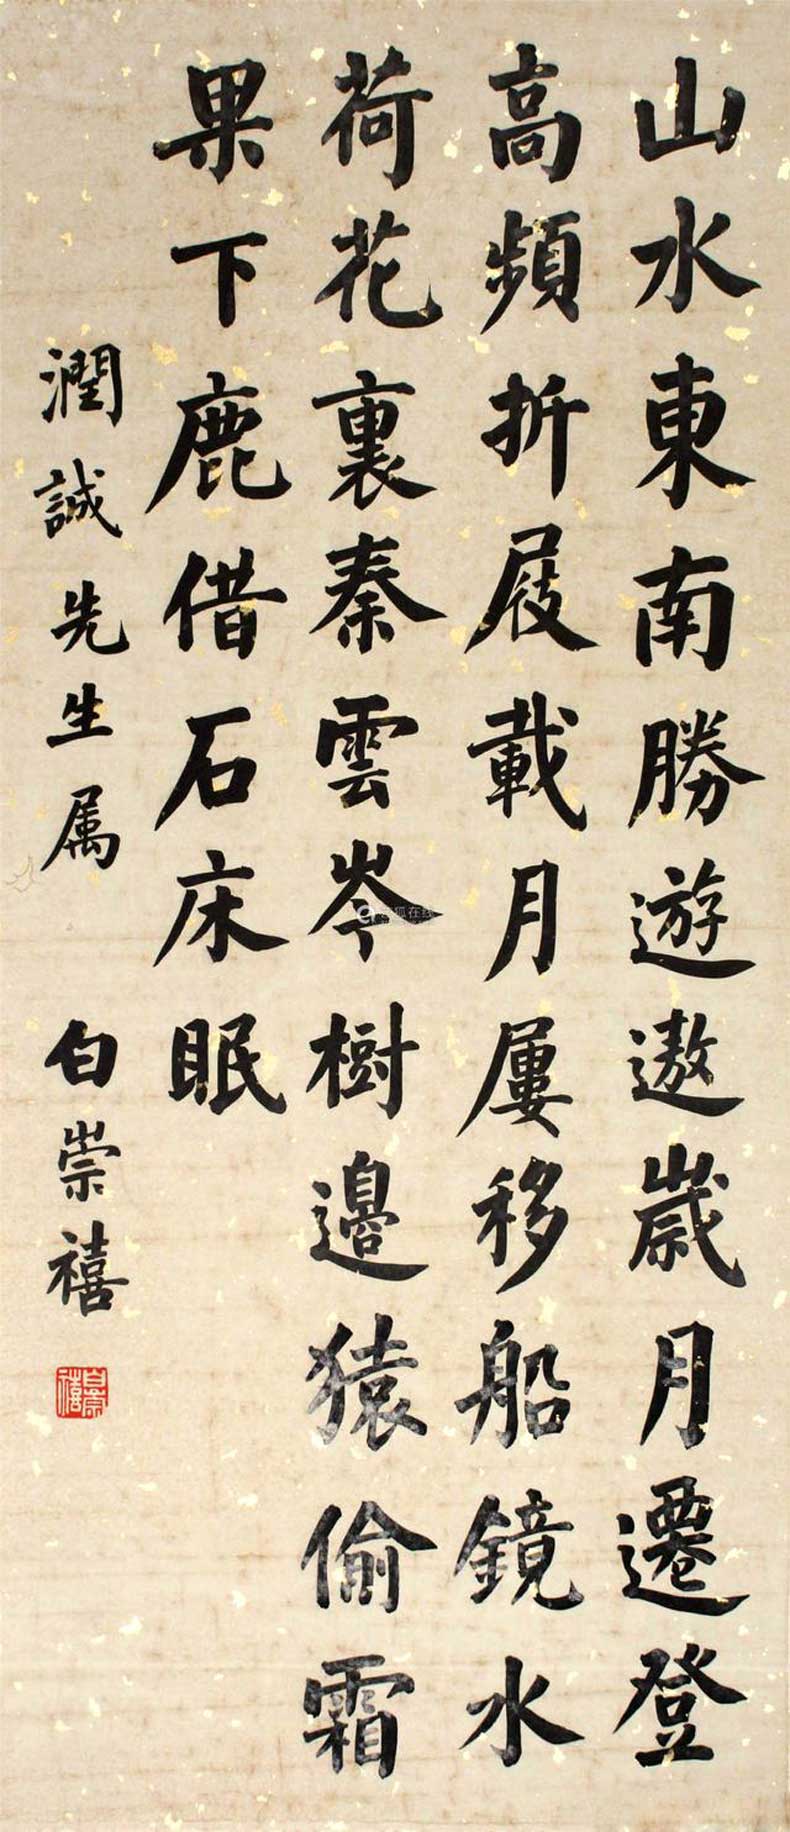 山水東南勝遊遨歲月遷登
高頻折屐載月屢移船鏡水
荷花裏秦雲岑樹邊猿偷霜
果下鹿借石床眠
潤誠先生属
白崇禧
白崇禧